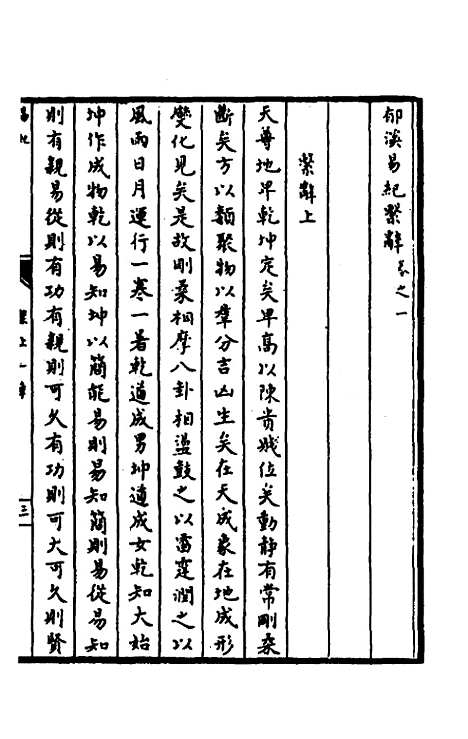 郁溪易紀繫辭卷之一
繫辭上
天尊地卑乾坤定矣卑高以陳貴賤位矣動静有常剛柔
斷矣方以類聚物以羣分吉凶生矣在天成象在地成形
變化見矣是故剛柔相摩八卦相盪鼓之以雷霆潤之以
風雨日月運行一寒一暑乾道成男坤道成女乾知大始
坤作成物乾以易知坤以簡能易則易知簡則易從易知
則有親易從則有功有親則可久有功則可大可久則賢